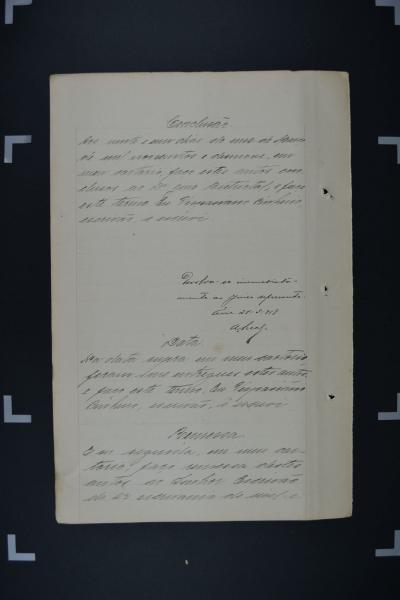 Conclusão
Aos vinte e um dias do mez de
de mil novecentos e dezenove, em
meu cartorio, faço estes autos con-
clusos ao Dr. Juiz Districtal, e faço
este termo. Eu
escrivão, o escrevi.
Devolva-se immediata-
mente ao Juizo deprecante.
21-5-919
A. Leal
Data
Na data supra em meu cartorio
foram-me entregues estes autos,
e faço este termo. Eu
escrivão, o escrevi
Remessa
Em seguida, em meu car-
torio, faço remessa destes
autos ao Senhor Escrivão